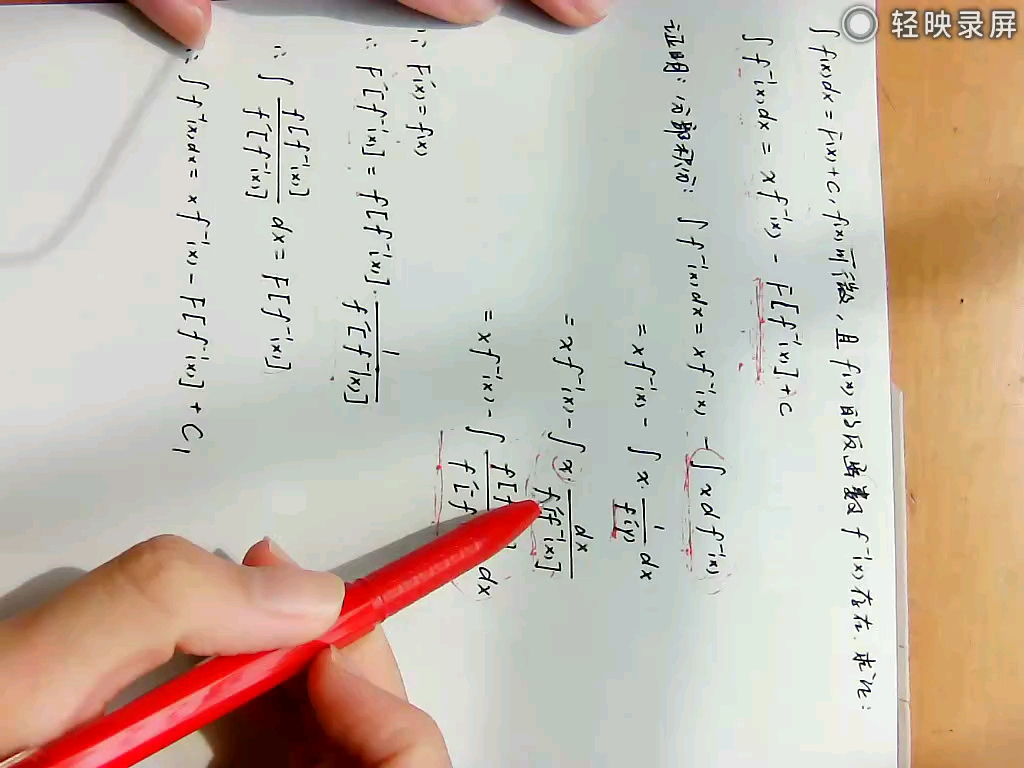 轻映录屏
∫f(x)dx = F(x)+C, f(x)可微, 且f(x)的反函数f⁻¹(x)存在. 求证:
∫f⁻¹(x)dx = xf⁻¹(x) - F[f⁻¹(x)] + C
证明: 分部积分: ∫f⁻¹(x)dx = xf⁻¹(x) - ∫xdf⁻¹(x)
= xf⁻¹(x) - ∫x·1/f'(y) dx
= xf⁻¹(x) - ∫x·dx/f'[f⁻¹(x)]
= xf⁻¹(x) - ∫ dx
∵ F'(x) = f(x)
∴ F'[f⁻¹(x)] = f[f⁻¹(x)]·1/f'[f⁻¹(x)]
∴ ∫f[f⁻¹(x)]/f'[f⁻¹(x)] dx = F[f⁻¹(x)]
∴ ∫f⁻¹(x)dx = xf⁻¹(x) - F[f⁻¹(x)] + C₁